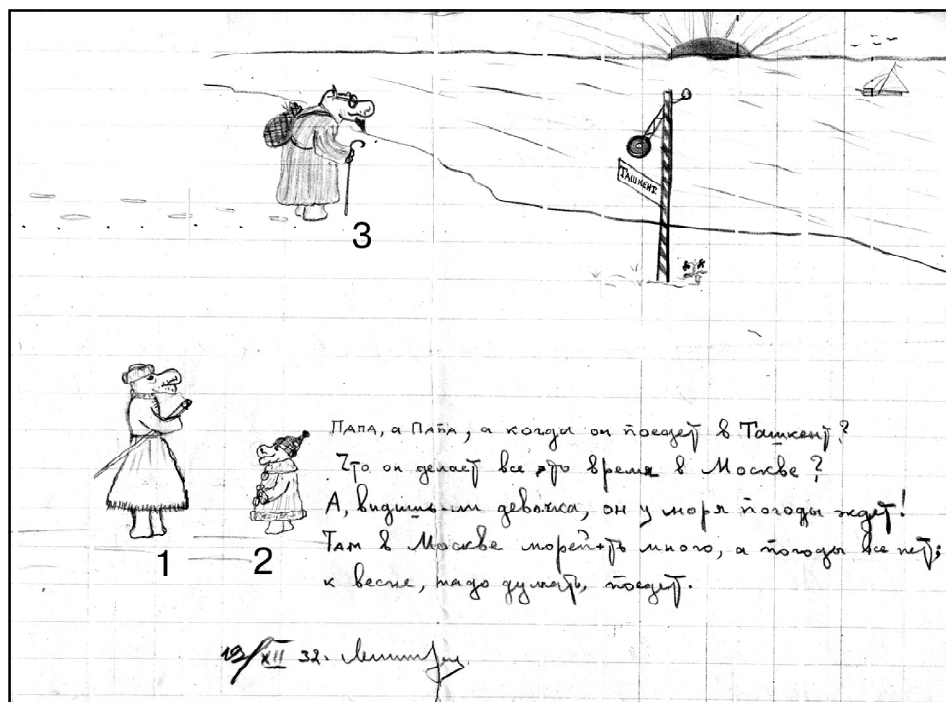 3
ТАШКЕНТ
1
2
ПАПА, а ПАПА, а когда он поедет в Ташкент?
Что он делает все это время в Москве?
А, видишь-ли девочка, он у моря погоды ждет!
Там в Москве морей-то много, а погоды все нет;
к весне, надо думать, поедет.
19/XII 32. Ленинград